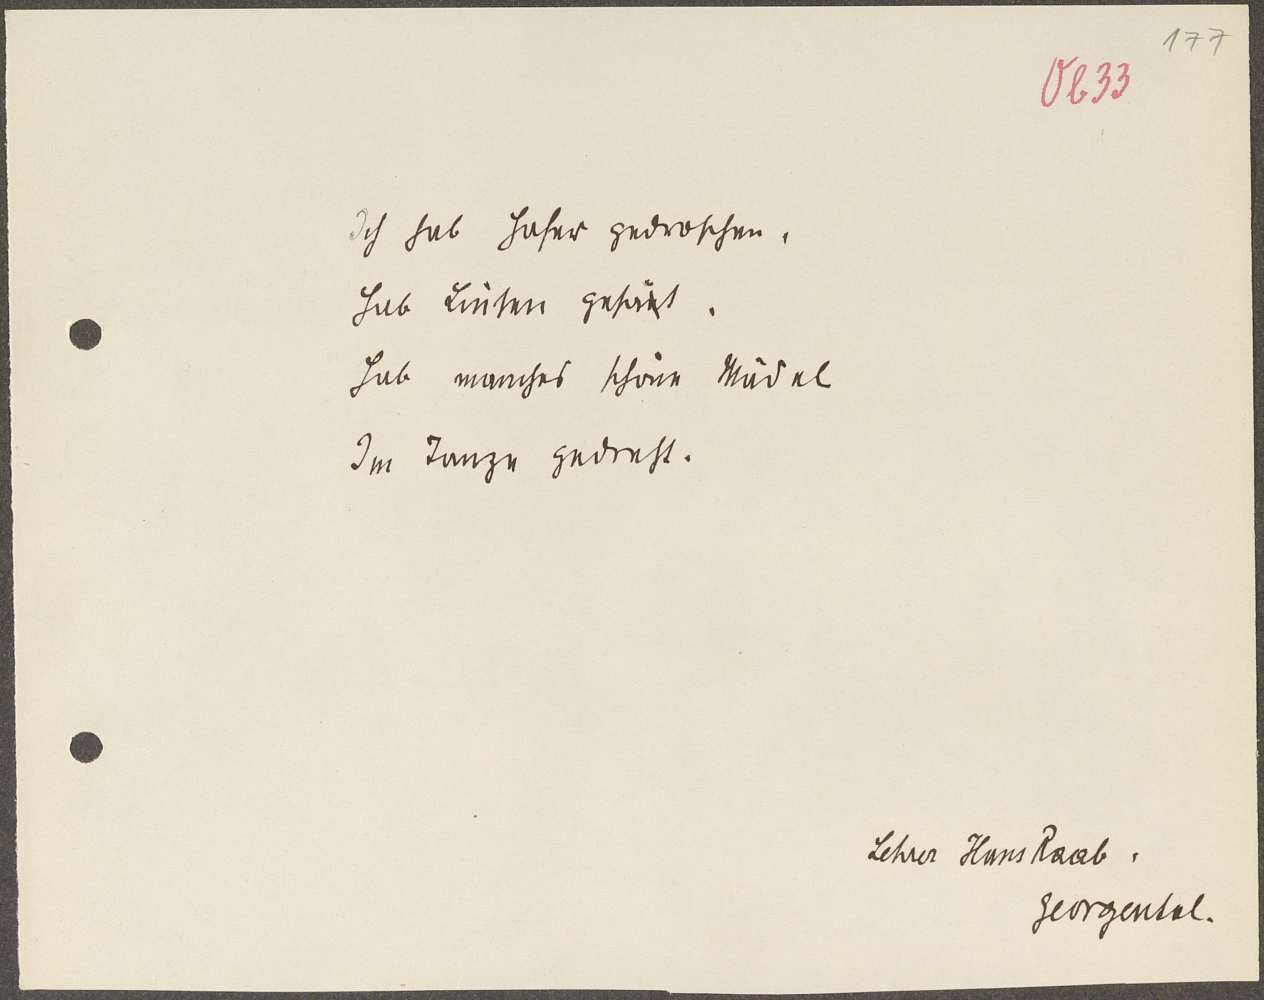 177
Vb33
Ich hab Hafer gedroschen,
Hab Linsen gesät,
Hab manches schöne Mädel
Im Tanze gedreht.
Lehrer Hans Raab,
Georgental.